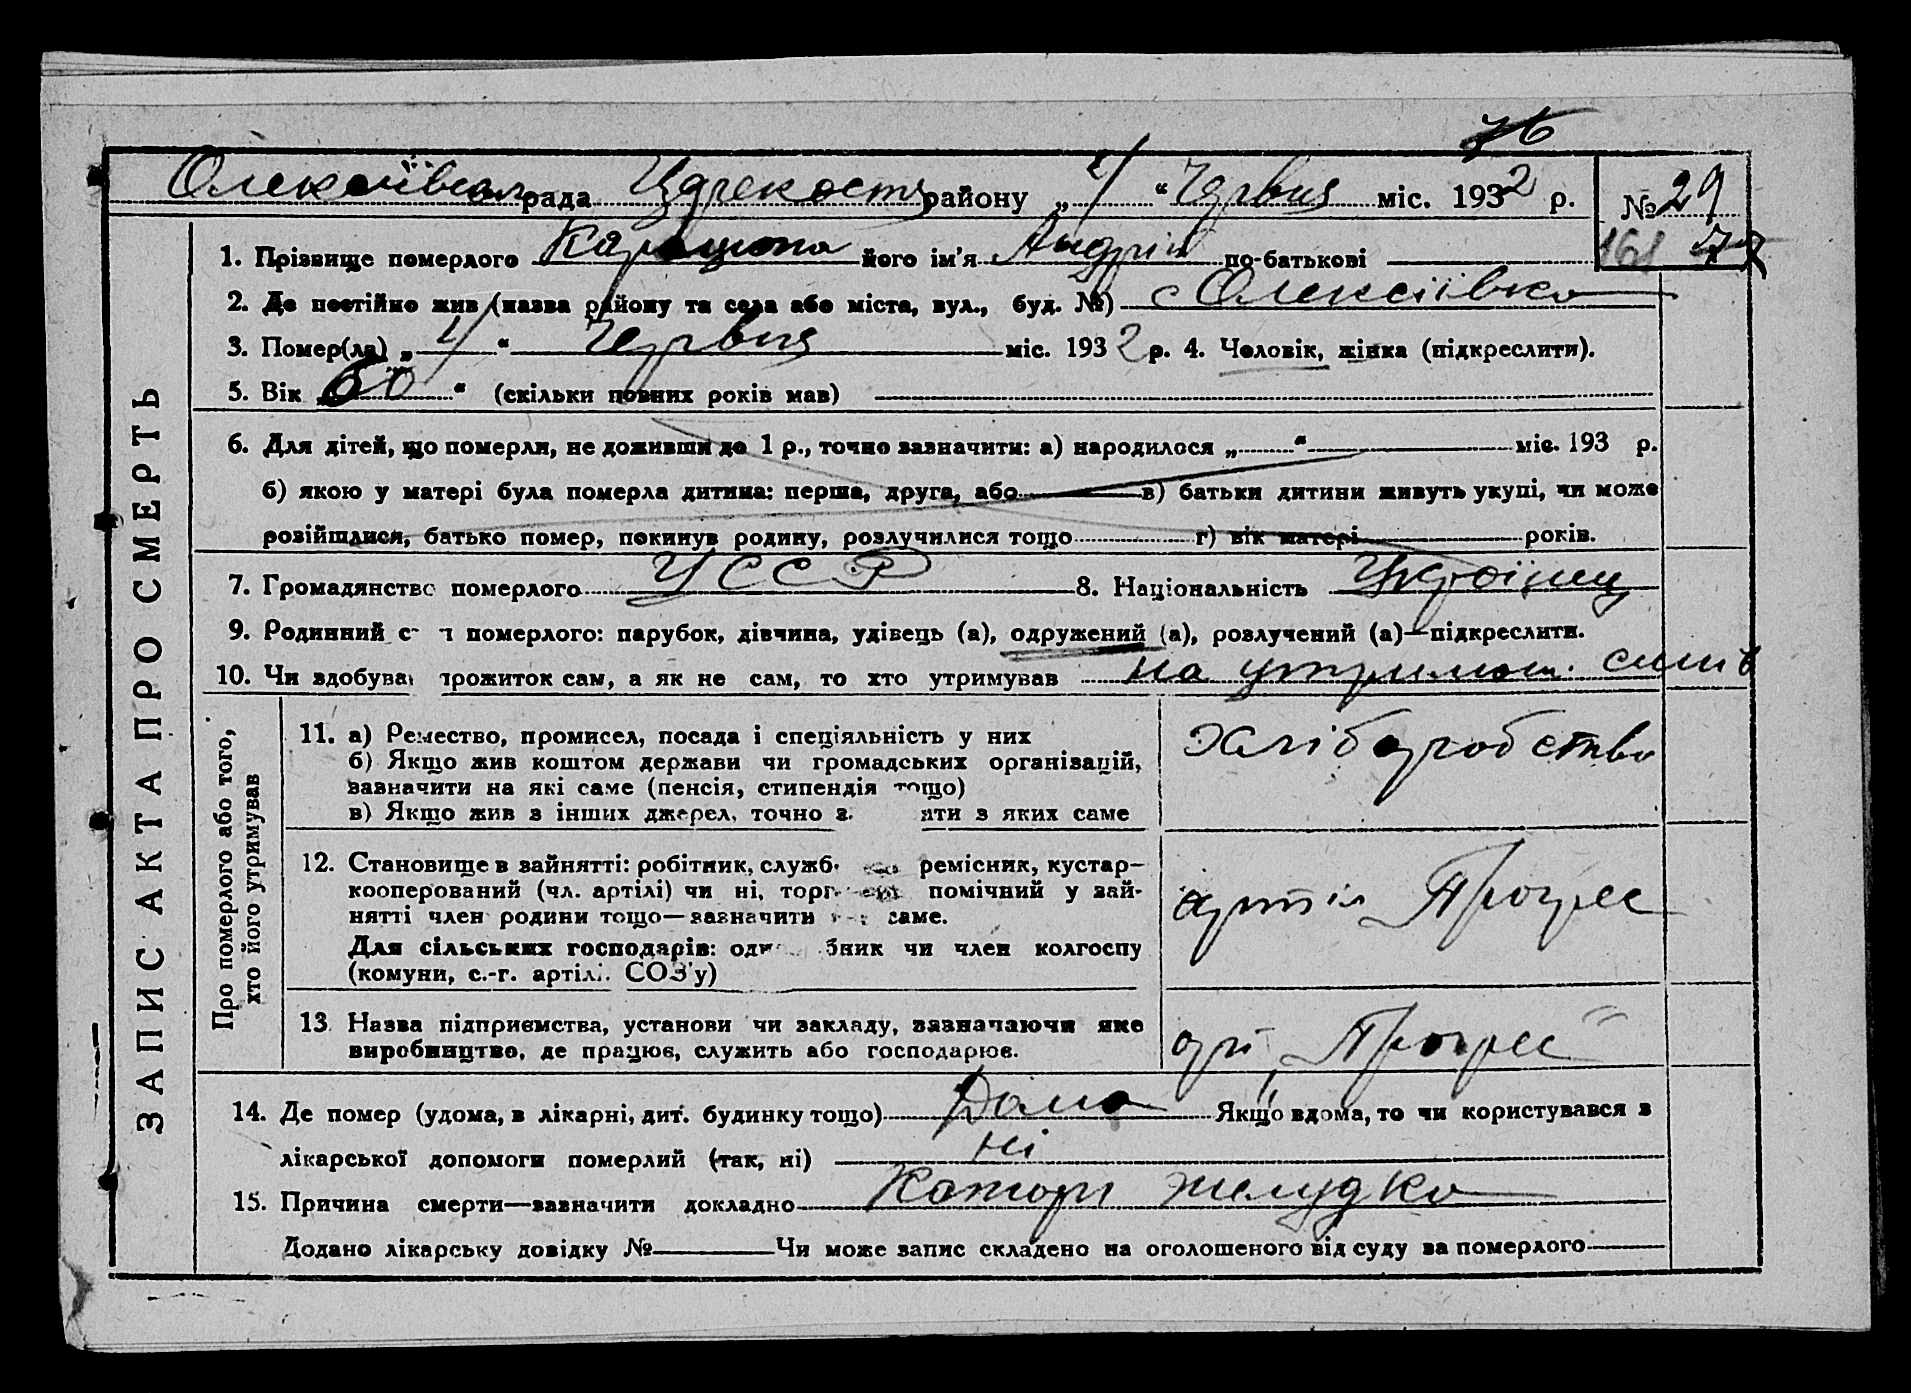 76
Олексіївська рада Царекост району „4“ Червня міс. 1932 р. № 29
161 77
1. Прізвище померлого його ім'я Андрій по-батькові
2. Де постійно жив (назва району та села або міста, вул., буд. №) с Олексіївка
3. Помер(ла) „4“ Червня міс. 1932 р. 4. Чоловік, жінка (підкреслити).
5. Вік 60 “ (скільки повних років мав)
6. Для дітей, що померли, не доживши до 1 р., точно зазначити: а) народилося „ “ міс. 193 р.
б) якою у матері була померла дитина: перша, друга, або в) батьки дитини живуть укупі, чи може
розійшлися, батько помер, покинув родину, розлучилися тощо г) вік матері років.
7. Громадянство померлого УССР 8. Національність Українец
9. Родинний с н померлого: парубок, дівчина, удівець (а), одружений (а), розлучений (а)—підкреслити.
10. Чи здобува прожиток сам, а як не сам, то хто утримував на утриман. синів
ЗАПИС АКТА ПРО СМЕРТЬ
Про померлого або того,
хто його утримував
11. а) Ремество, промисел, посада і спеціяльність у них
б) Якщо жив коштом держави чи громадських організацій,
зазначити на які саме (пенсія, стипендія тощо)
в) Якщо жив з інших джерел, точно з яти з яких саме
Хліборобство
12. Становище в зайнятті: робітник, служб ремісник, кустар—
кооперований (чл. артілі) чи ні, торг помічний у зай-
нятті член родини тощо—зазначити саме.
Для сільських господарів: оди бник чи член колгоспу
(комуни, с.-г. артілі. СОЗ'у)
артіл Прогрес
13. Назва підприємства, установи чи закладу, зазначаючи яке
виробництво, де працює, служить або господарює.
арт „Прогрес“
14. Де помер (удома, в лікарні, дит. будинку тощо) Дома Якщо вдома, то чи користувався в
лікарської допомоги померлий (так, ні) ні
15. Причина смерти—зазначити докладно Катари желудка
Додано лікарську довідку № Чи може запис складено на оголошеного від суду за померлого